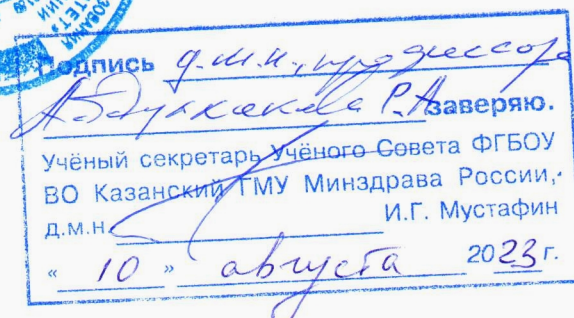 Подпись д.м.н., профессора
Абдулхакова Р.А. заверяю.
Учёный секретарь Учёного Совета ФГБОУ
ВО Казанский ГМУ Минздрава России,
д.м.н. И.Г. Мустафин
« 10 » августа 2023 г.